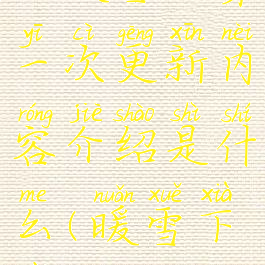 yī cì gēng xīn nèi
一次更新内
róng jiè shào shì shí
容介绍是什
me nuǎn xuě xià
么(暖雪下